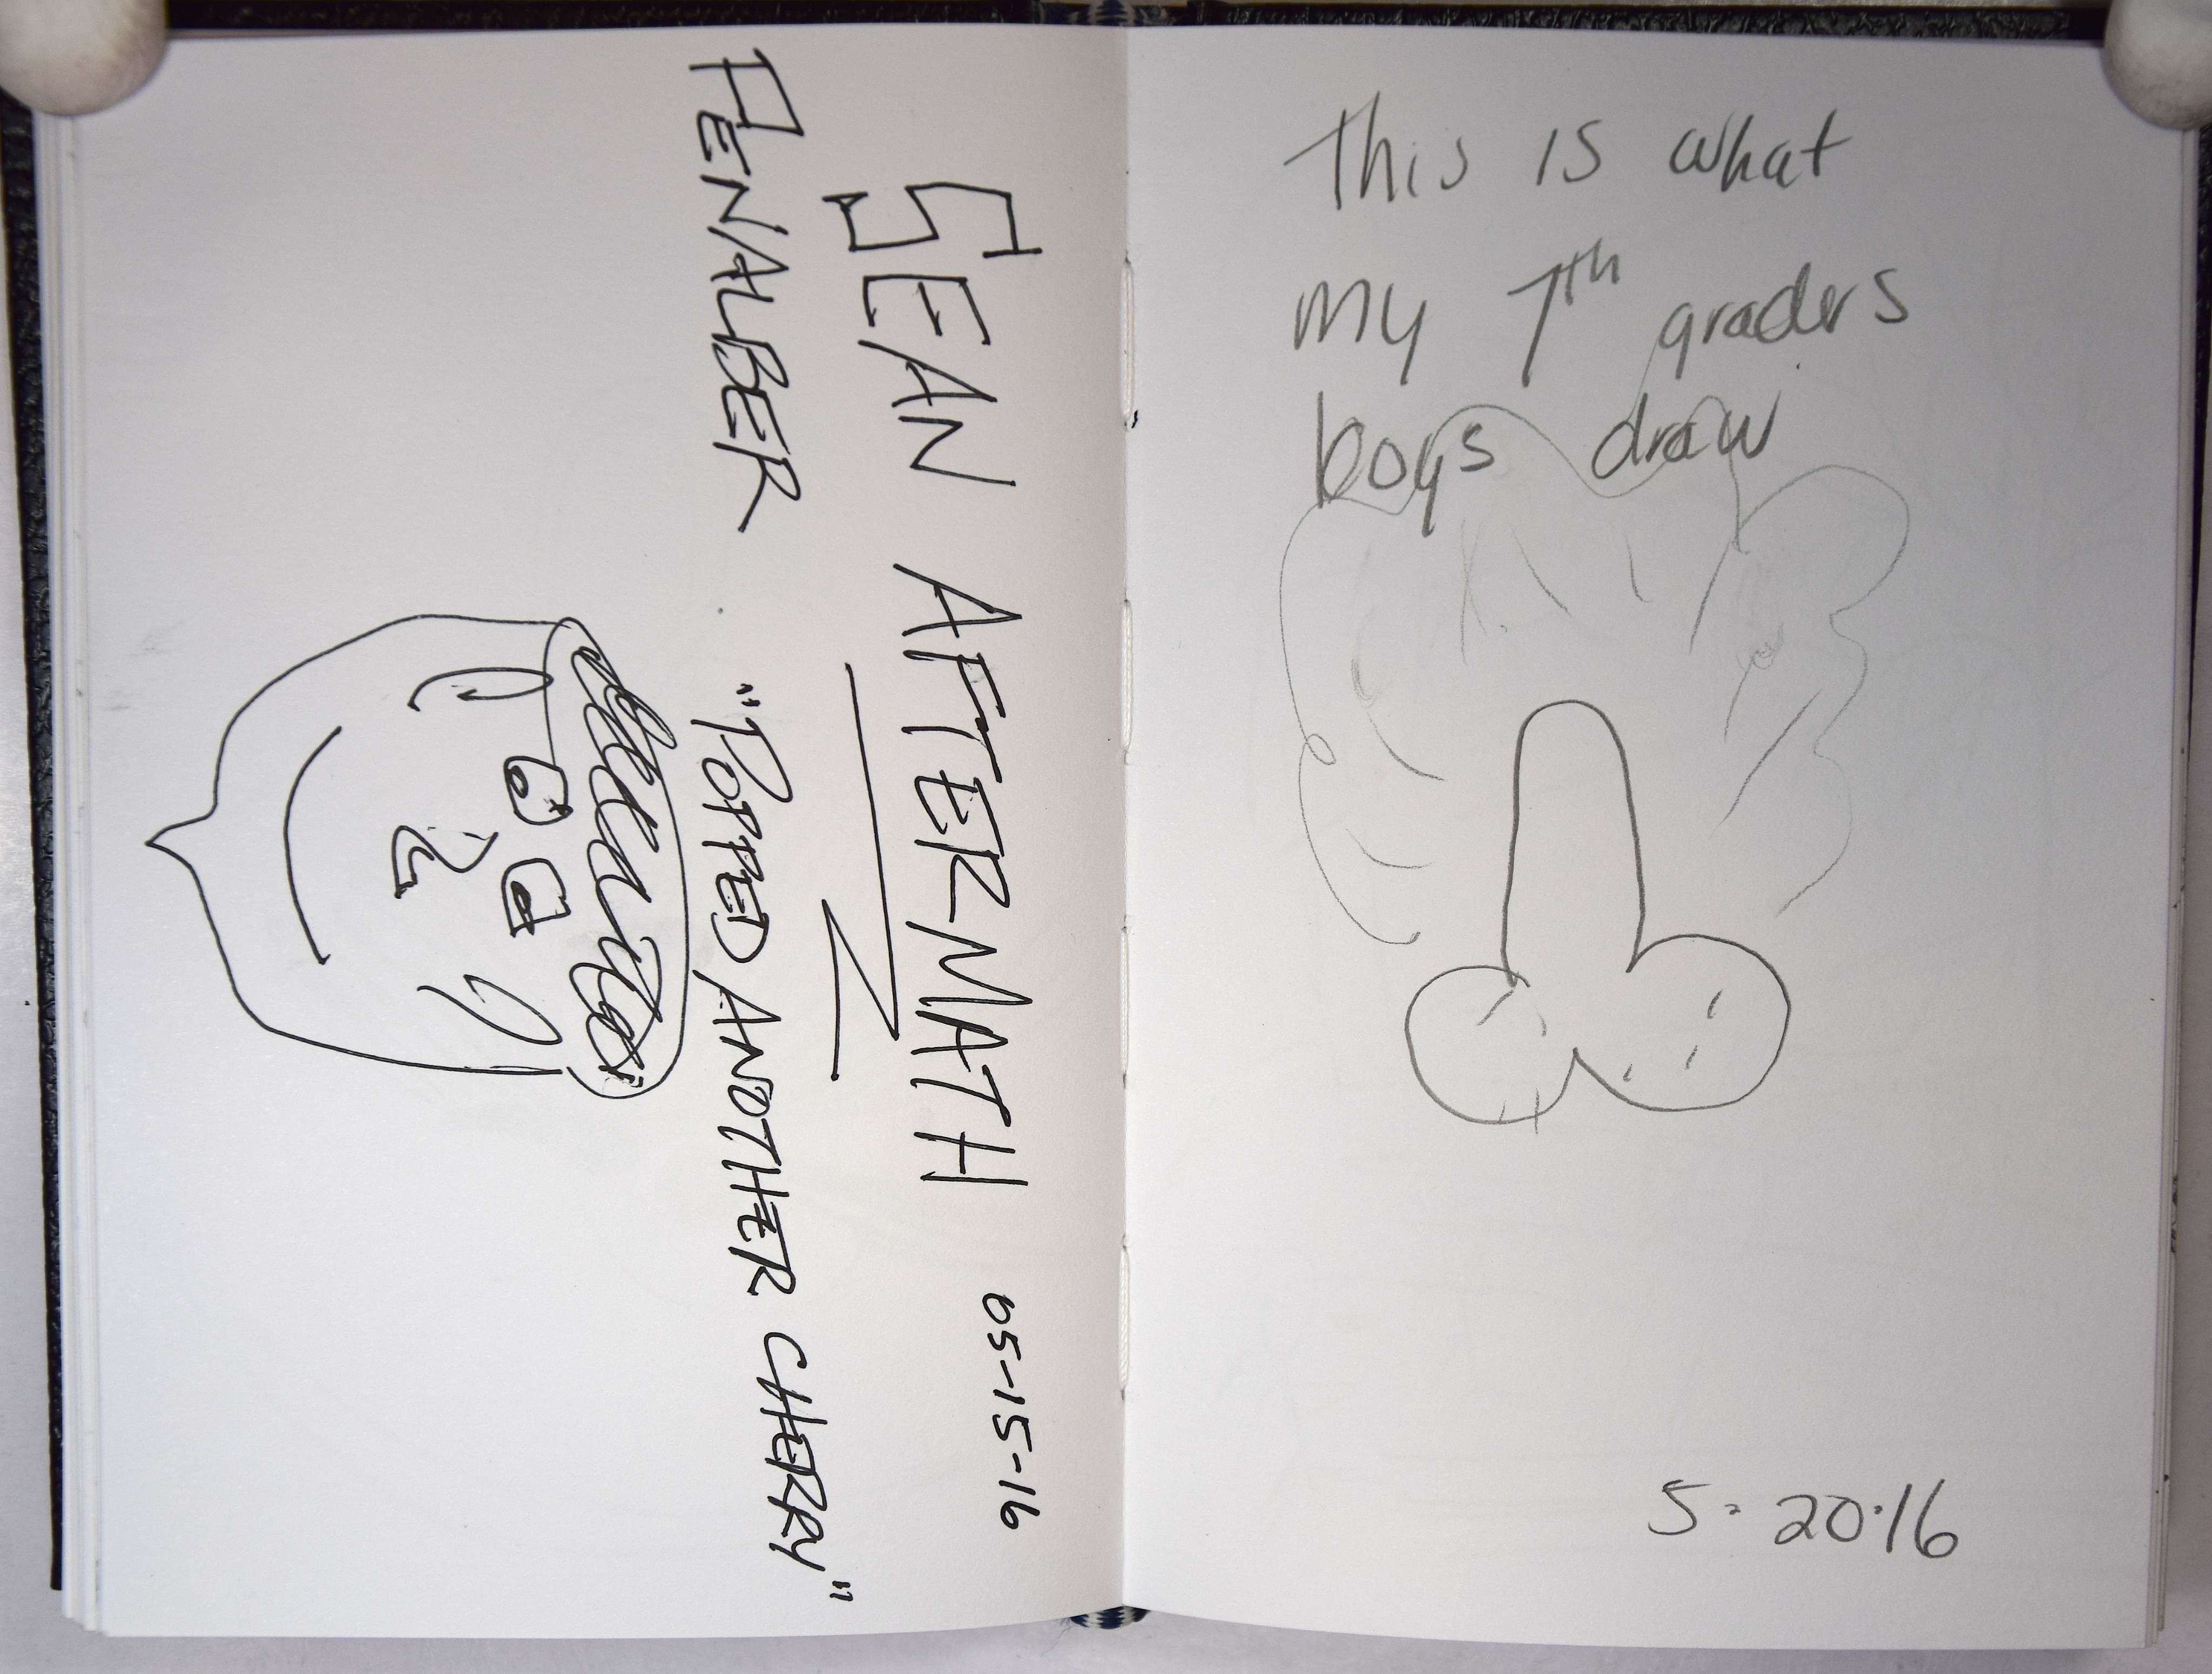 SEAN AFTERMATH 05-15-16
PENALBER
"POPPED ANOTHER CHERRY"
This is what
my 7th graders
boys draw
5-20-16